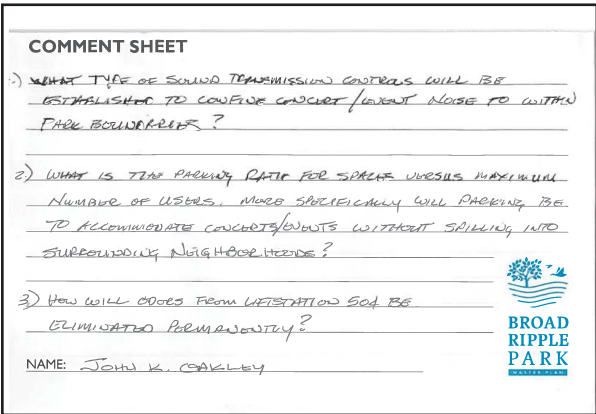 COMMENT SHEET
1.) WHAT TYPE OF SOUND TRANSMISSION CONTROLS WILL BE
ESTABLISHED TO CONFINE CONCERT/EVENT NOISE TO WITHIN
PARK BOUNDARIES?
2.) WHAT IS THE PARKING RATIO FOR SPACES VERSUS MAXIMUM
NUMBER OF USERS. MORE SPECIFICALLY WILL PARKING BE
TO ACCOMMODATE CONCERTS/EVENTS WITHOUT SPILLING INTO
SURROUNDING NEIGHBORHOODS?
3.) HOW WILL ODORS FROM LIFTSTATION 504 BE
ELIMINATED PERMANENTLY?
BROAD
RIPPLE
PARK
MASTER PLAN
NAME: JOHN K. COAKLEY